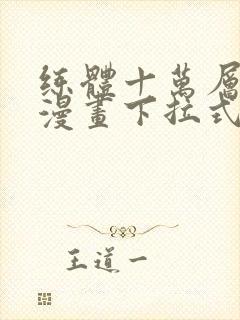 练體十萬層
漫畫下拉式
王道一